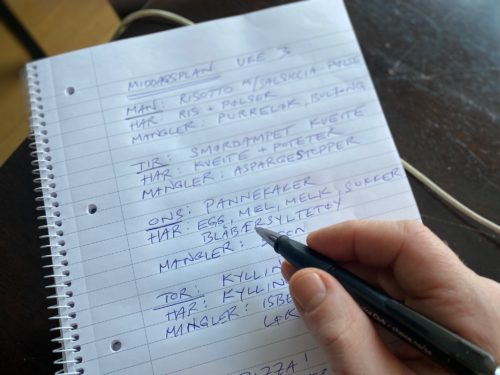 MIDDAGSPLAN UKE 3
MAN: RISOTTO M/SALSICCIA PØLSE
HAR: RIS + PØLSER
MANGLER: PURRELØK, BULJONG
TIR: SMØRDAMPET KVEITE
HAR: KVEITE + POTETER
MANGLER: ASPARGESTOPPER
ONS: PANNEKAKER
HAR: EGG, MEL, MELK, SUKKER
BLÅBÆRSYLTETØY
MANGLER:
TOR: KYLLIN
HAR: KYLLIN
MANGLER: ISBE
PIZZA!